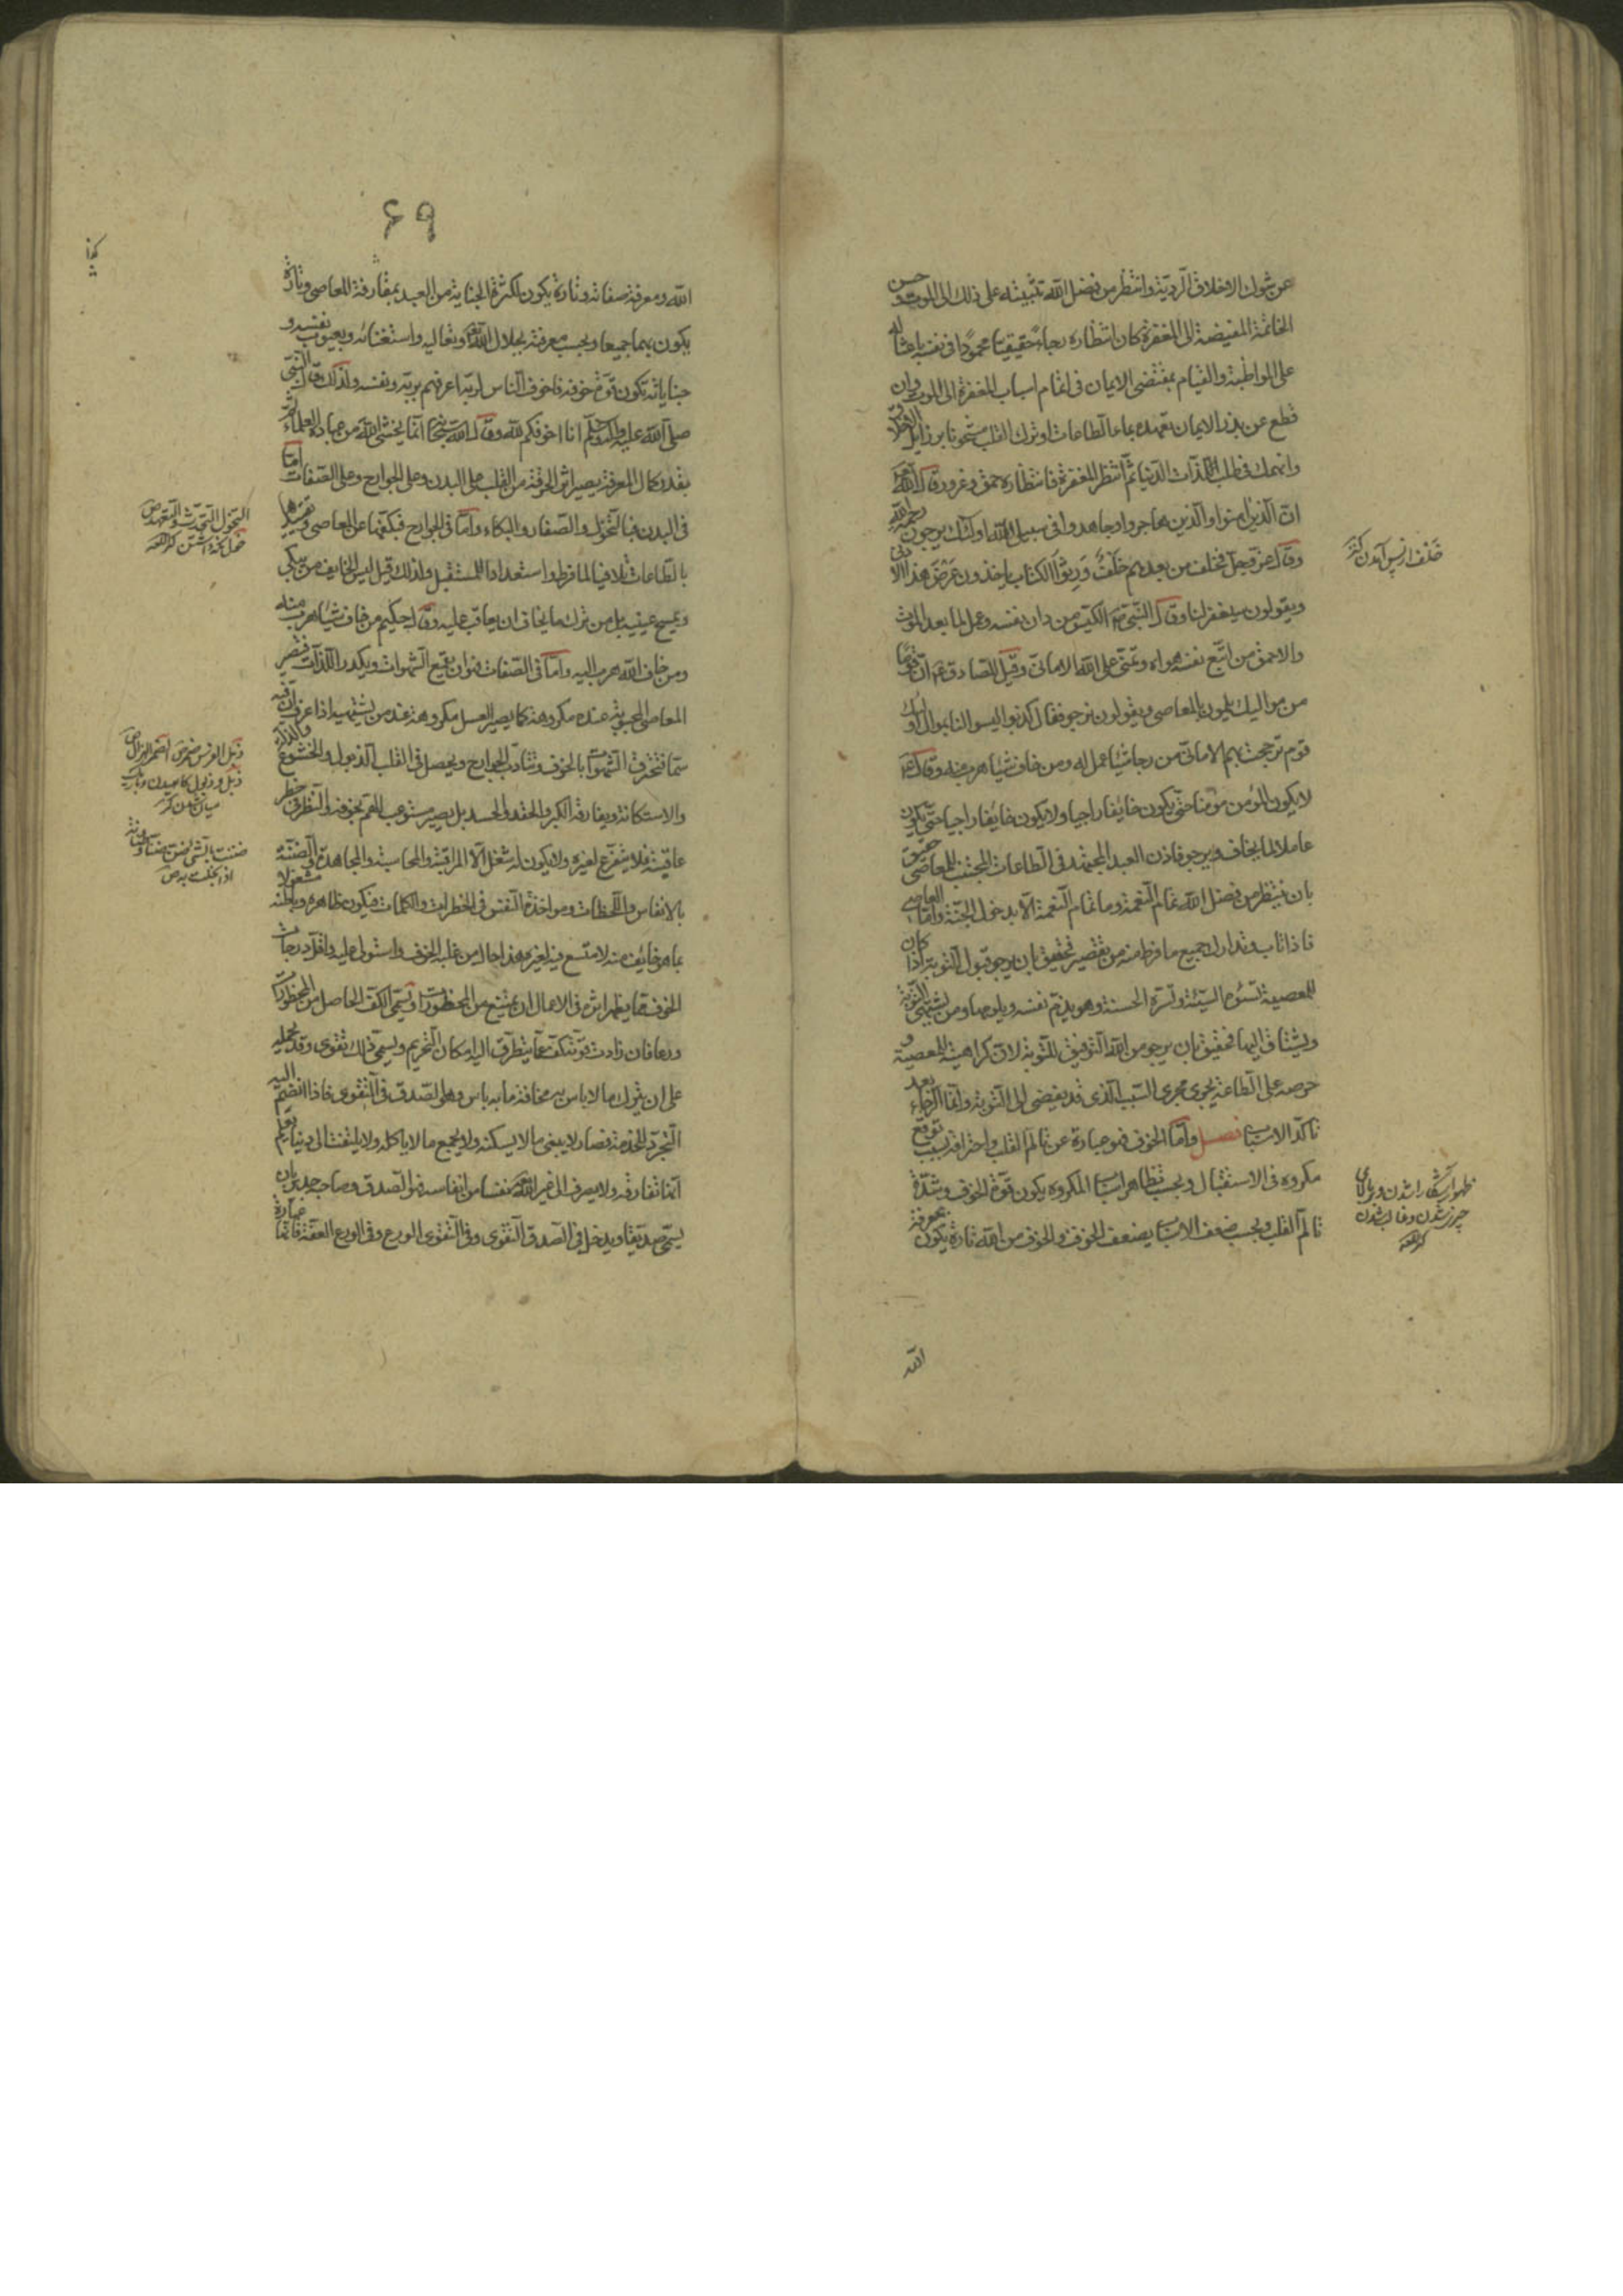 عن شوك الاخلاق الردية وانتظر من فضل الله تثبيته على ذلك الى الموت وحسن
الخاتمة المفيضة الى المغفرة كان انتظاره رجاء حقيقيا محمودا فى نفسه باعثا له
على المواظبة والقيام بمقتضى الايمان فى اتمام اسباب المغفرة الى الموت وان
قطع عن بذر الايمان تعهده بماء الطاعات او ترك القلب مشحونا برذايل الاخلاق
وانهمك فى طلب لذات الدنيا ثم انتظر المغفرة فانتظاره حمق وغرور قال الله
ان الذين امنوا والذين هاجروا وجاهدوا فى سبيل الله اولئك يرجون رحمة الله
وقال عز وجل فخلف من بعدهم خلف ورثوا الكتاب ياخذون عرض هذا الادنى
ويقولون سيغفر لنا وقال النبى ص الكيس من دان نفسه وعمل لما بعد الموت
والاحمق من اتبع نفسه هواه وتمنى على الله الامانى وقيل للصادق ع ان قوما
من مواليك يلمون بالمعاصى ويقولون نرجو فقال كذبوا ليسوا لنا بموال اولئك
قوم ترجحت بهم الامانى من رجا شيئا عمل له ومن خاف شيئا هرب منه وقال ع
لا يكون المؤمن مؤمنا حتى يكون خائفا راجيا ولا يكون خايفا راجيا حتى يكون
عاملا لما يخاف ويرجو فاذن العبد المجتهد فى الطاعات المجتنب للمعاصى حقيق
بان ينتظر من فضل الله تمام النعمة وما تمام النعمة الا بدخول الجنة واما العاصى
فاذا تاب وتدارك جميع ما فرط منه من تقصير فحقيق بان يرجو قبول التوبة اذا كان
للمعصية تسوءه السيئة وتسره الحسنة وهو يذم نفسه ويلومها ومن يشتهى التوبة
ويشتاق اليها فحقيق بان يرجو من الله التوفيق للتوبة لان كراهيته للمعصية و
حرصه على الطاعة يجرى مجرى السبب الذى قد يفضى الى التوبة وانما الرجاء بعد
تاكد الاسباب فصل واما الخوف فهو عبارة عن تالم القلب واحتراقه بسبب توقع
مكروه فى الاستقبال وبحسب تظاهر اسباب المكروه يكون قوة الخوف وشدة
تالم القلب وبحسب ضعف الاسباب يضعف الخوف والخوف من الله تارة يكون بمعرفة
الله
خلف از پس آمدن كنز
ظهور آشكارا شدن وبر بالاى
چيز شدن وغالب شدن
كنز اللغه
٦٩
الله ومعرفة صفاته وتارة يكون لكثرة الجناية من العبد بمقارفة المعاصى وتارة
يكون بهما جميعا وبحسب معرفته بجلال الله وتعاليه واستغنائه وبعيوب نفسه و
جناياته تكون قوة خوفه فاخوف الناس لربه اعرفهم بربه وبنفسه ولذلك قال النبى
صلى الله عليه واله وسلم انا اخوفكم لله وقال الله انما يخشى الله من عباده العلماء ثم
بقدر كمال المعرفة يصير اثر الحرقة من القلب على البدن وعلى الجوارح وعلى الصفات اما
فى البدن فبالنحول والصفار والبكاء واما فى الجوارح فبكفها عن المعاصى وتقييدها
بالطاعات تلافيا لما فرط واستعدادا للمستقبل ولذلك قيل ليس الخايف من يبكى
ويمسح عينيه بل من ترك ما يخاف ان يعاقب عليه وقال حكيم من خاف شيئا هرب منه
ومن خاف الله هرب اليه واما فى الصفات فهو ان يقمع الشهوات ويكدر اللذات فتصير
المعاصى المحبوبة عنده مكروهة كما يصير العسل مكروها عند من يشتهيه اذا عرف ان فيه
سما فتحترق الشهوات بالخوف وتتادب الجوارح ويحصل فى القلب الذبول والخشوع والذلة
والاستكانة ويفارقه الكبر والحقد والحسد بل يصير مستوعب الهم بخوفه والنظر فى خطر
عاقبته فلا يتفرغ لغيره ولا يكون له شغل الا المراقبة والمحاسبة والمجاهدة والضنة
بالانفاس واللحظات ومواخذة النفس فى الخطرات والكلمات فيكون ظاهره وباطنه مشغولا
بما هو خائف منه لا متسع فيه لغيره هذا حال من غلبه الخوف واستولى عليه واقل درجات
الخوف مما يظهر اثره فى الاعمال ان يمتنع من المحظورات ويسمى الكف الحاصل من المحظورات
ورعا فان زادت قوته كف عما يتطرق اليه امكان التحريم ويسمى ذلك تقوى وقد يحمله
على ان يترك ما لا باس به مخافة ما به باس وهو الصدق فى التقوى فاذا انضم اليه
التجرد للخدمة فصار لا يبنى ما لا يسكنه ولا يجمع ما لا ياكله ولا يلتفت الى دنيا يعلم
انها تفارقه ولا يصرف الى غير الله نفسا من انفاسه فهو الصدق وصاحبه جدير بان
يسمى صديقا ويدخل فى الصدق التقوى وفى التقوى الورع وفى الورع العفة فانها عبارة
ضننت بالشى اضن ضنا وضنانة
اذا بخلت به ص